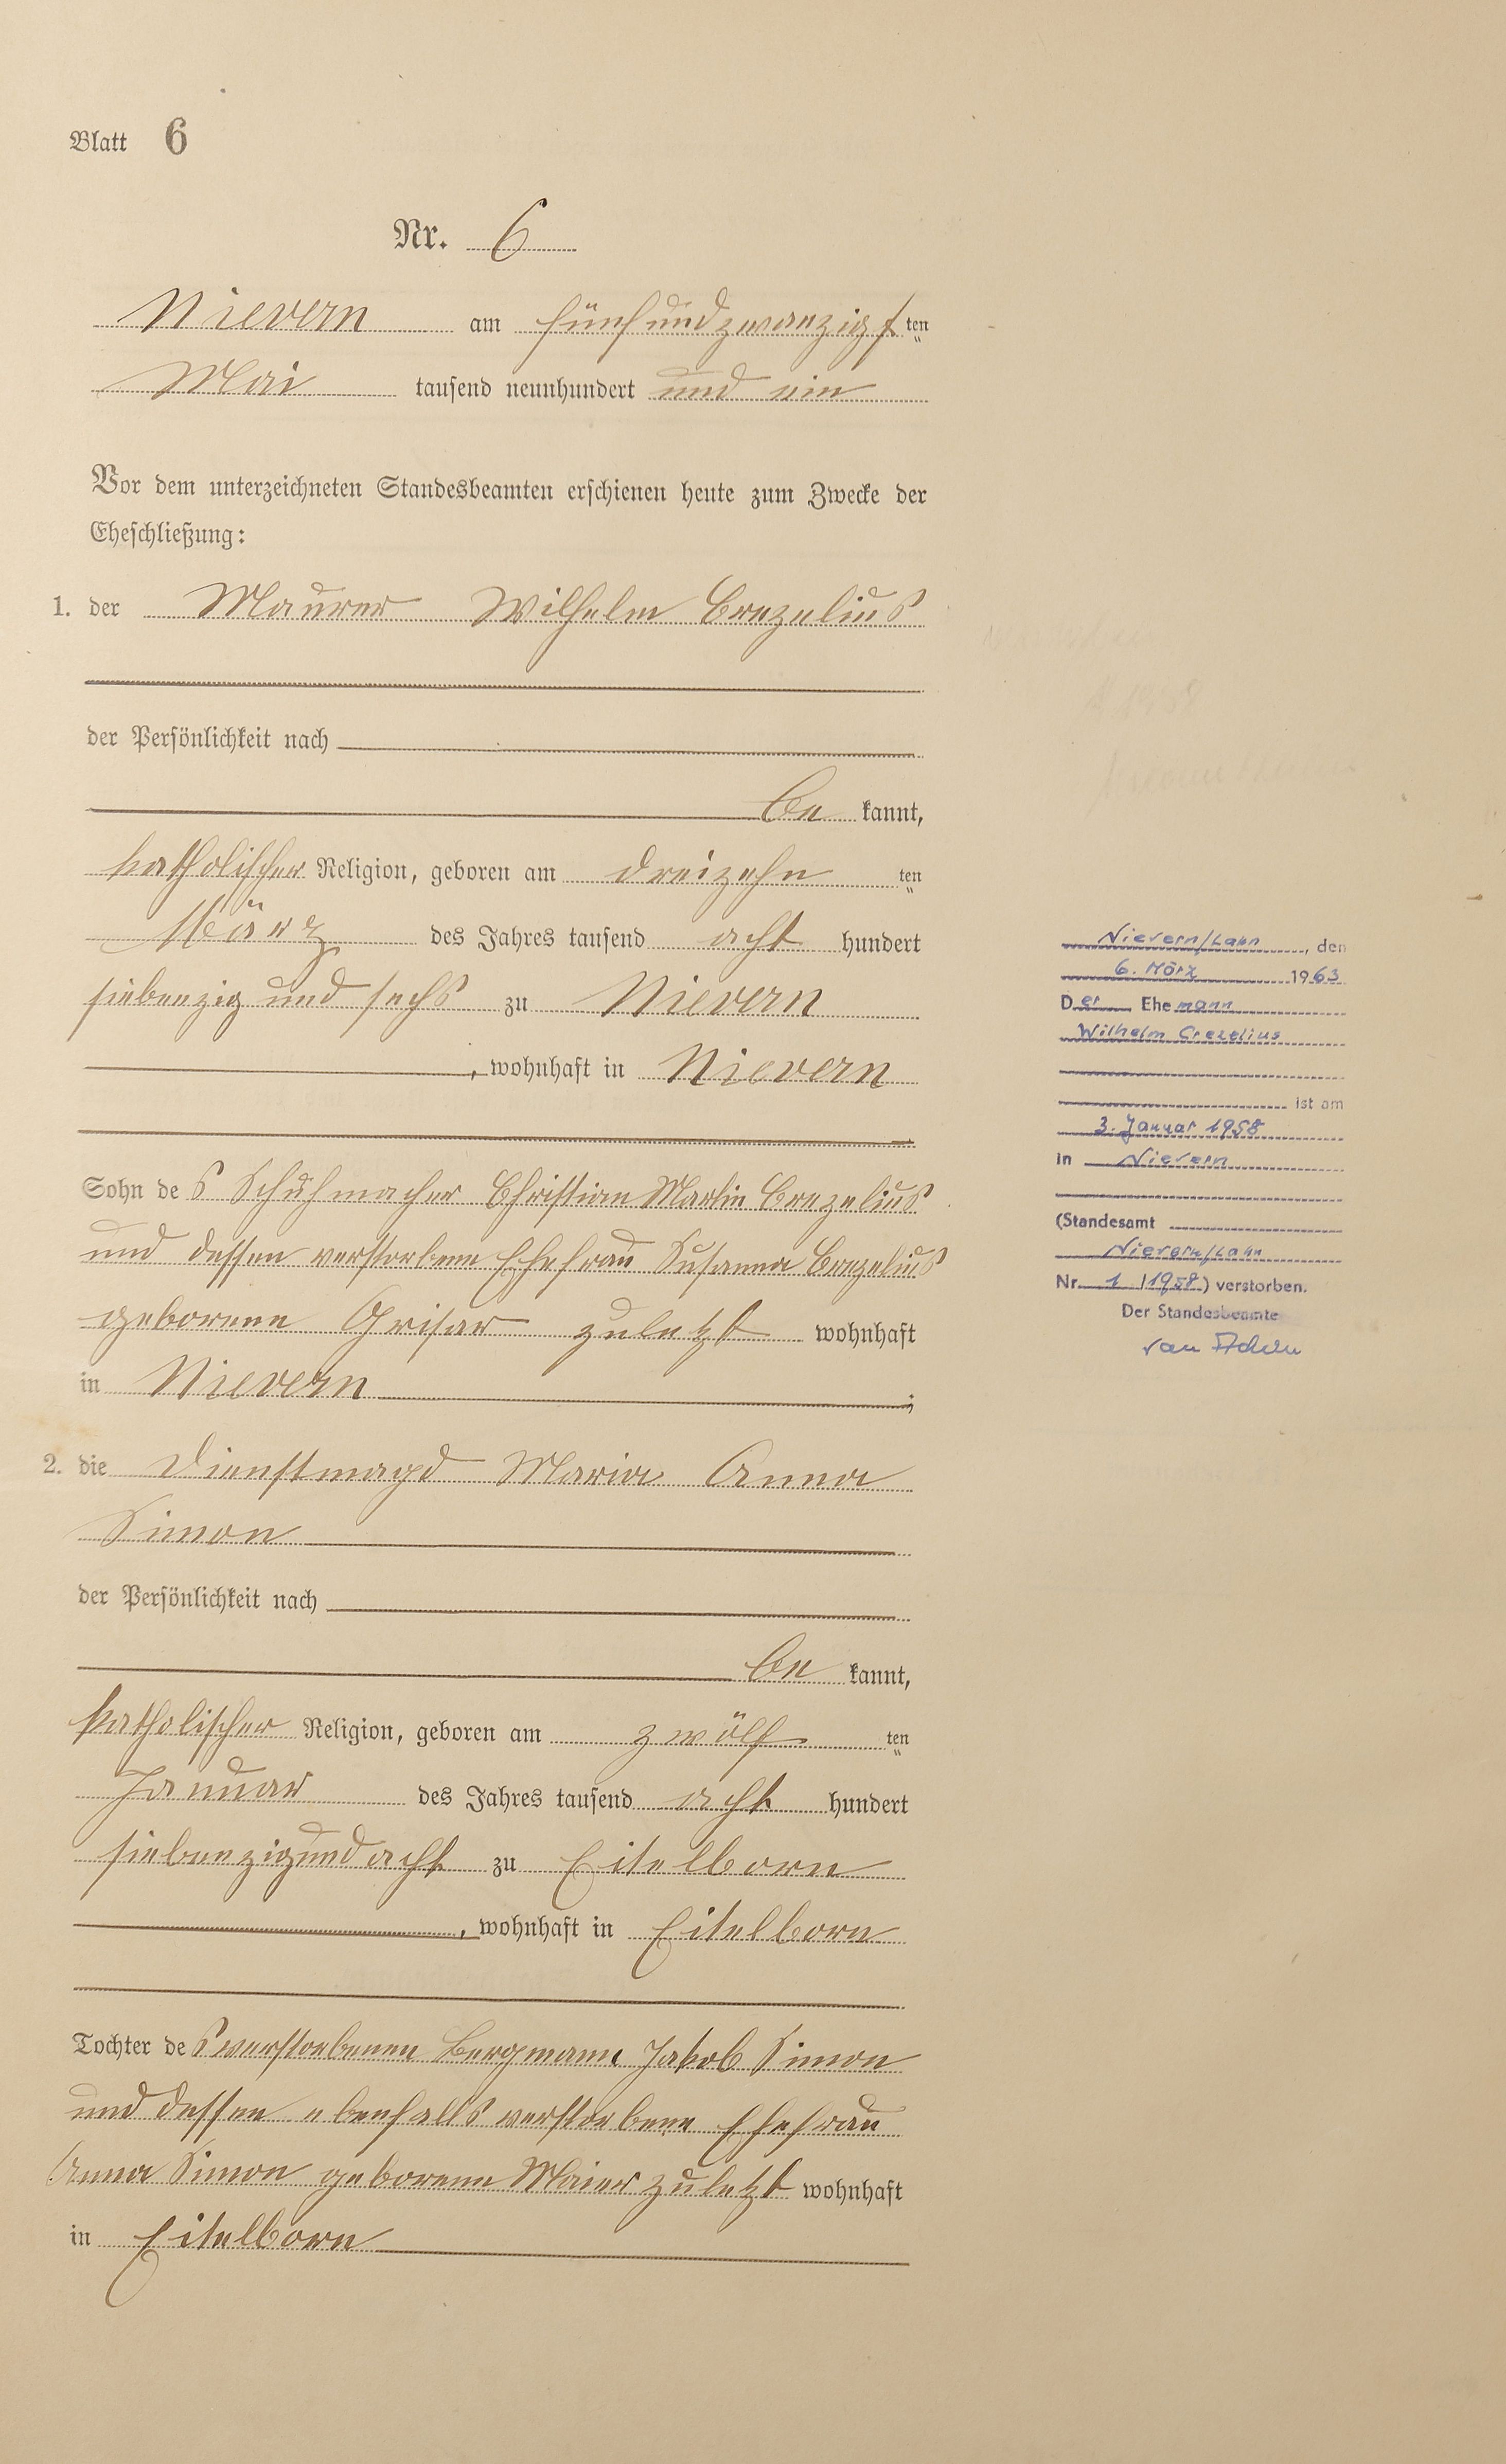 Blatt 6
Nr. 6
Nievern am fünfundzwanzigsten
Mai tausend neunhundert und ein
Vor dem unterzeichneten Standesbeamten erschienen heute zum Zwecke der
Eheschließung:
1. der Maurer Wilhelm Crezelius
der Persönlichkeit nach
be kannt,
katholischer Religion, geboren am dreizehn ten
März des Jahres tausend acht hundert
siebenzig und sechs zu Nievern
, wohnhaft in Nievern
Sohn des Schuhmacher Christian Martin Crezelius
und dessen verstorbene Ehefrau Susanna Crezelius
geborene Grisar zuletzt wohnhaft
in Nievern ;
2. die Dienstmagd Maria Anna
Simon
der Persönlichkeit nach
be kannt,
katholischer Religion, geboren am zwölf ten
Januar des Jahres tausend acht hundert
siebenzigundacht zu Eitelborn
, wohnhaft in Eitelborn
Tochter des verstorbenen Bergmann Jakob Simon
und dessen ebenfalls verstorbene Ehefrau
Anna Simon geborene Maier zuletzt wohnhaft
in Eitelborn
Nievern/Lahn, den
6. März 1963
Der Ehemann
Wilhelm Crezelius
ist am
3. Januar 1958
in Nievern
(Standesamt
Nievern/Lahn
Nr. 1 /1958) verstorben.
Der Standesbeamte